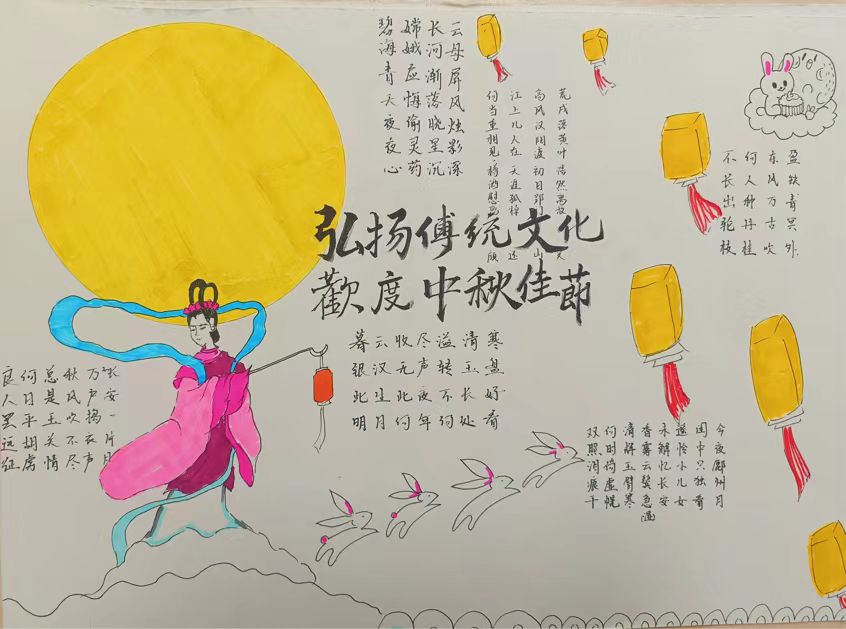 云母屏风烛影深
长河渐落晓星沉
嫦娥应悔偷灵药
碧海青天夜夜心
荒戍落黄叶 浩然离故
高风汉阳渡 初日郢山
江上几人在 天涯孤棹还
何当重相见 樽酒慰离颜
盈缺青冥外
东风万古吹
何人种丹桂
不长出轮枝
弘扬傅统文化
歡度中秋佳節
暮云收尽溢清寒
银汉无声转玉盘
此生此夜不长好
明月何年何处看
长安一片月
万户捣衣声
秋风吹不尽
总是玉关情
何日平胡虏
良人罢远征
今夜鄜州月
闺中只独看
遥怜小儿女
未解忆长安
香雾云鬟湿
清辉玉臂寒
何时倚虚幌
双照泪痕干